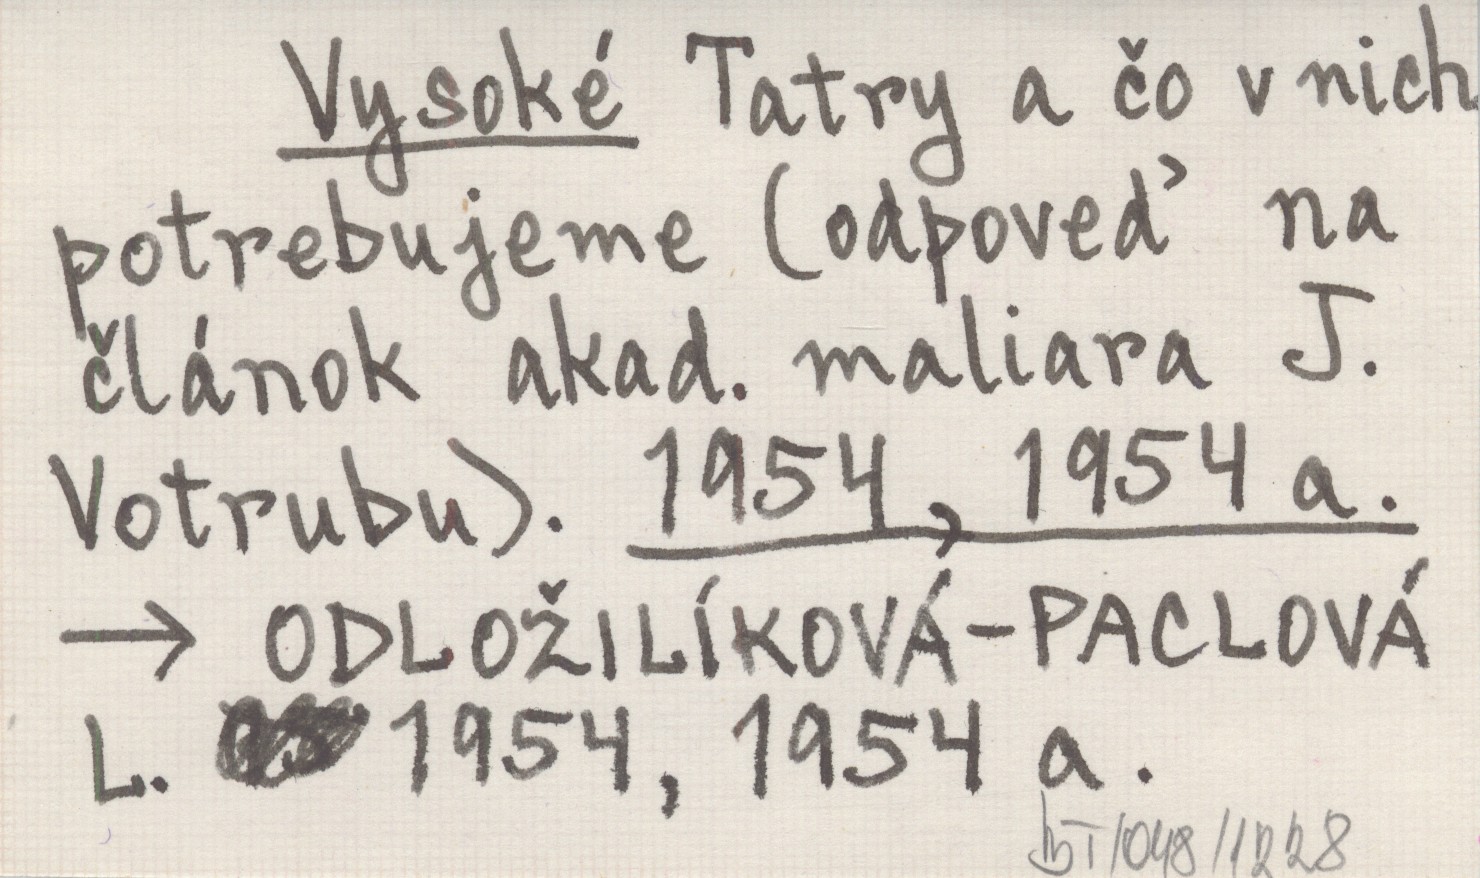 Vysoké Tatry a čo v nich
potrebujeme (odpoveď na
článok akad. maliara J.
Votrubu). 1954, 1954 a.
→ ODLOŽILÍKOVÁ-PACLOVÁ
L. 1954, 1954 a.
/048/1228